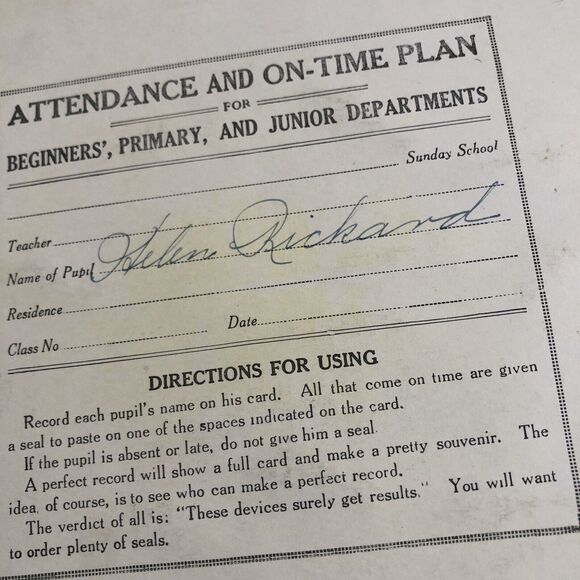 ATTENDANCE AND ON-TIME PLAN
FOR
BEGINNERS', PRIMARY, AND JUNIOR DEPARTMENTS
Sunday School
Teacher
Name of Pupil Helen Rickard
Residence
Class No Date
DIRECTIONS FOR USING
Record each pupil's name on his card. All that come on time are given
a seal to paste on one of the spaces indicated on the card.
If the pupil is absent or late, do not give him a seal.
A perfect record will show a full card and make a pretty souvenir. The
idea, of course, is to see who can make a perfect record.
The verdict of all is: "These devices surely get results." You will want
to order plenty of seals.